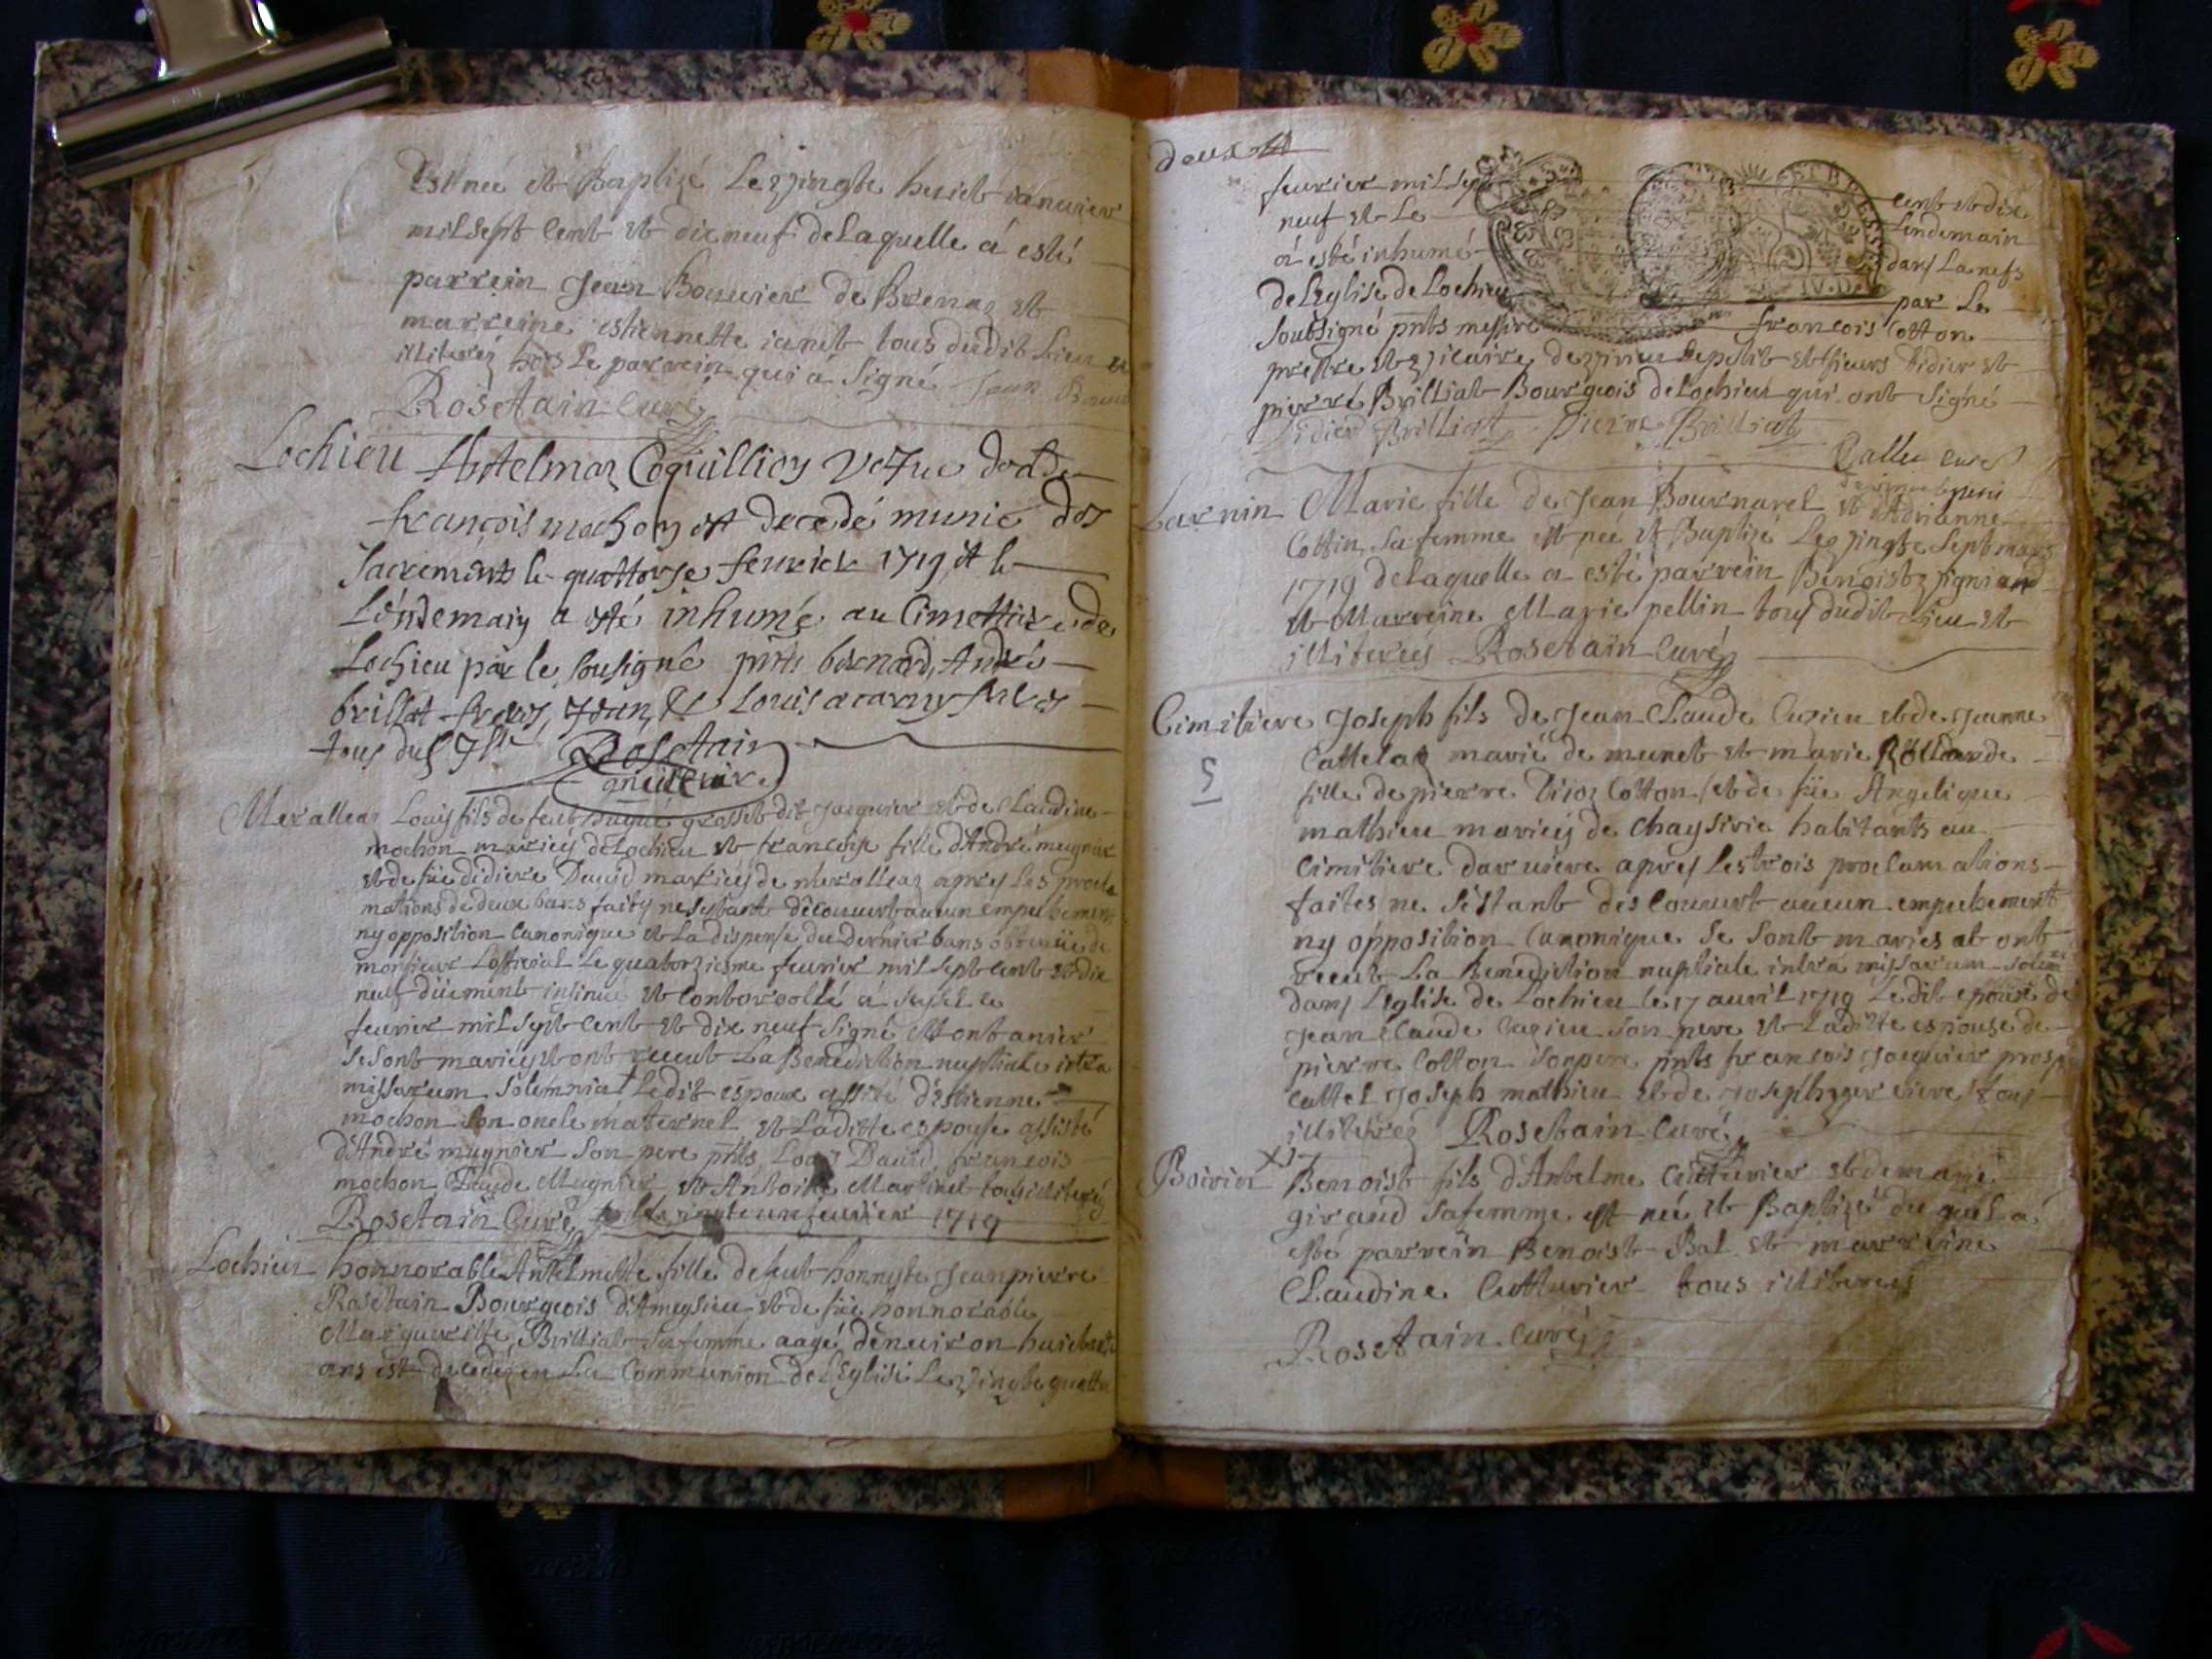 Est neé et Baptizé Le vingte huict Januier
mil sept Cent et dix neuf de Laquelle á esté
parrein Jean Bouuier de Brenaz et
marreine estiennette ianet tous dudit Lieu et
illiterez hors Le parrein qui á Signé Jean
Rosetain Curé
Lochieu Antelmaz Coquillion
françois mochon est decedé munie des
Sacrements le quattorse feurier 1719 et le
Lendemain a esté inhumée au Cimettiere de
Lochieu par le sousigné pnts bernard, André
brillat freres, Jean, & Louis
tous Rosetain
Merallea Louis fils de feu hugue grosset dit Jacquier et de Claudine
mochon mariéz de Lochieu et francoise fille d'André mugnier
et de füe didiere Dauid mariéz de Meralleaz apres Les procla
mations de deux bans faits ne s'estant découuert aucun empechement
ny opposition Canonique et La dispense du dernier bans obtenüe de
monsieur L'official Le quatorziesme feurier mil sept cent et dix
neuf düement insinué et Controollé á Seissel Le
feurier mil sept cent et dix neuf Signé Montanier
Se Sont mariéz et ont receut La Benediction nuptiale intra
missarum Solemnia Ledit espoux assisté d'Estienne
mochon Son oncle maternel et Laditte espouse assisté
d'André mugnier Son pere pnts Louis Dauid, francois
mochon Claude Mugnier et Antoine Martinet tous illiteréz
Rosetain Curé feurier 1719
Lochieu honnorable Anthelmette fille de feut honneste Jean pierre
Rosetain Bourgeois d'Ameysieu et de füe honnorable
Marguerite Brilliat Sa femme aagé d'enuiron huictante
ans est decedéz en La Communion de L'Eglise Le vingte quattre
deux
feurier mil sept cent et dix
neuf et Le Lendemain
á esté inhumé dans La nefs
de L'Eglise de Lochieu par Le
Soubsigné pnts messire francois Cotton
prestre et vicaire de virieu Le petit et sieurs Didier et
pierre Brilliat Bourgeois de Lochieu qui ont Signé
Didier Brilliat Pierre Brilliat
Callec curé
Larnin Marie fille de Jean Bournarel et Adrianne
Cottin Sa femme est née et Baptizé Le vingte Sept mars
1719 de Laquelle a esté parrein Benoist
et Marreine Marie pellin tous dudit Lieu et
illiterés Rosetain Curé
Cimitiere Joseph fils de Jean Claude Cuzieu et de Jeanne
Cattelaz marié de munet et marie Rollande
5
fille de pierre Cotton et de füe Angelique
mathieu mariéz de Chaysirie habitants au
Cimitiere daruiere apres Les trois proclamations
faites ne s'estant descouuert aucun empechement
ny opposition Canonique Se Sont mariés et ont
receut La Benediction nuptiale intra missarum solem
dans L'Eglise de Lochieu le 17 auril 1719 Ledit epoux de
Jean Claude Cuzieu Son pere et Laditte espouse de
pierre Cotton Son pere pnts francois Jacquier
Cattel Joseph mathieu et de Joseph tous
illiterez Rosetain Curé
Boirin Benoist fils d'Antelme Cutturier et de marie
giraud Sa femme est né et Baptizé du quel á
esté parrein Benoist Bal et marreine
Claudine Cutturier tous illiterés
Rosetain Curé